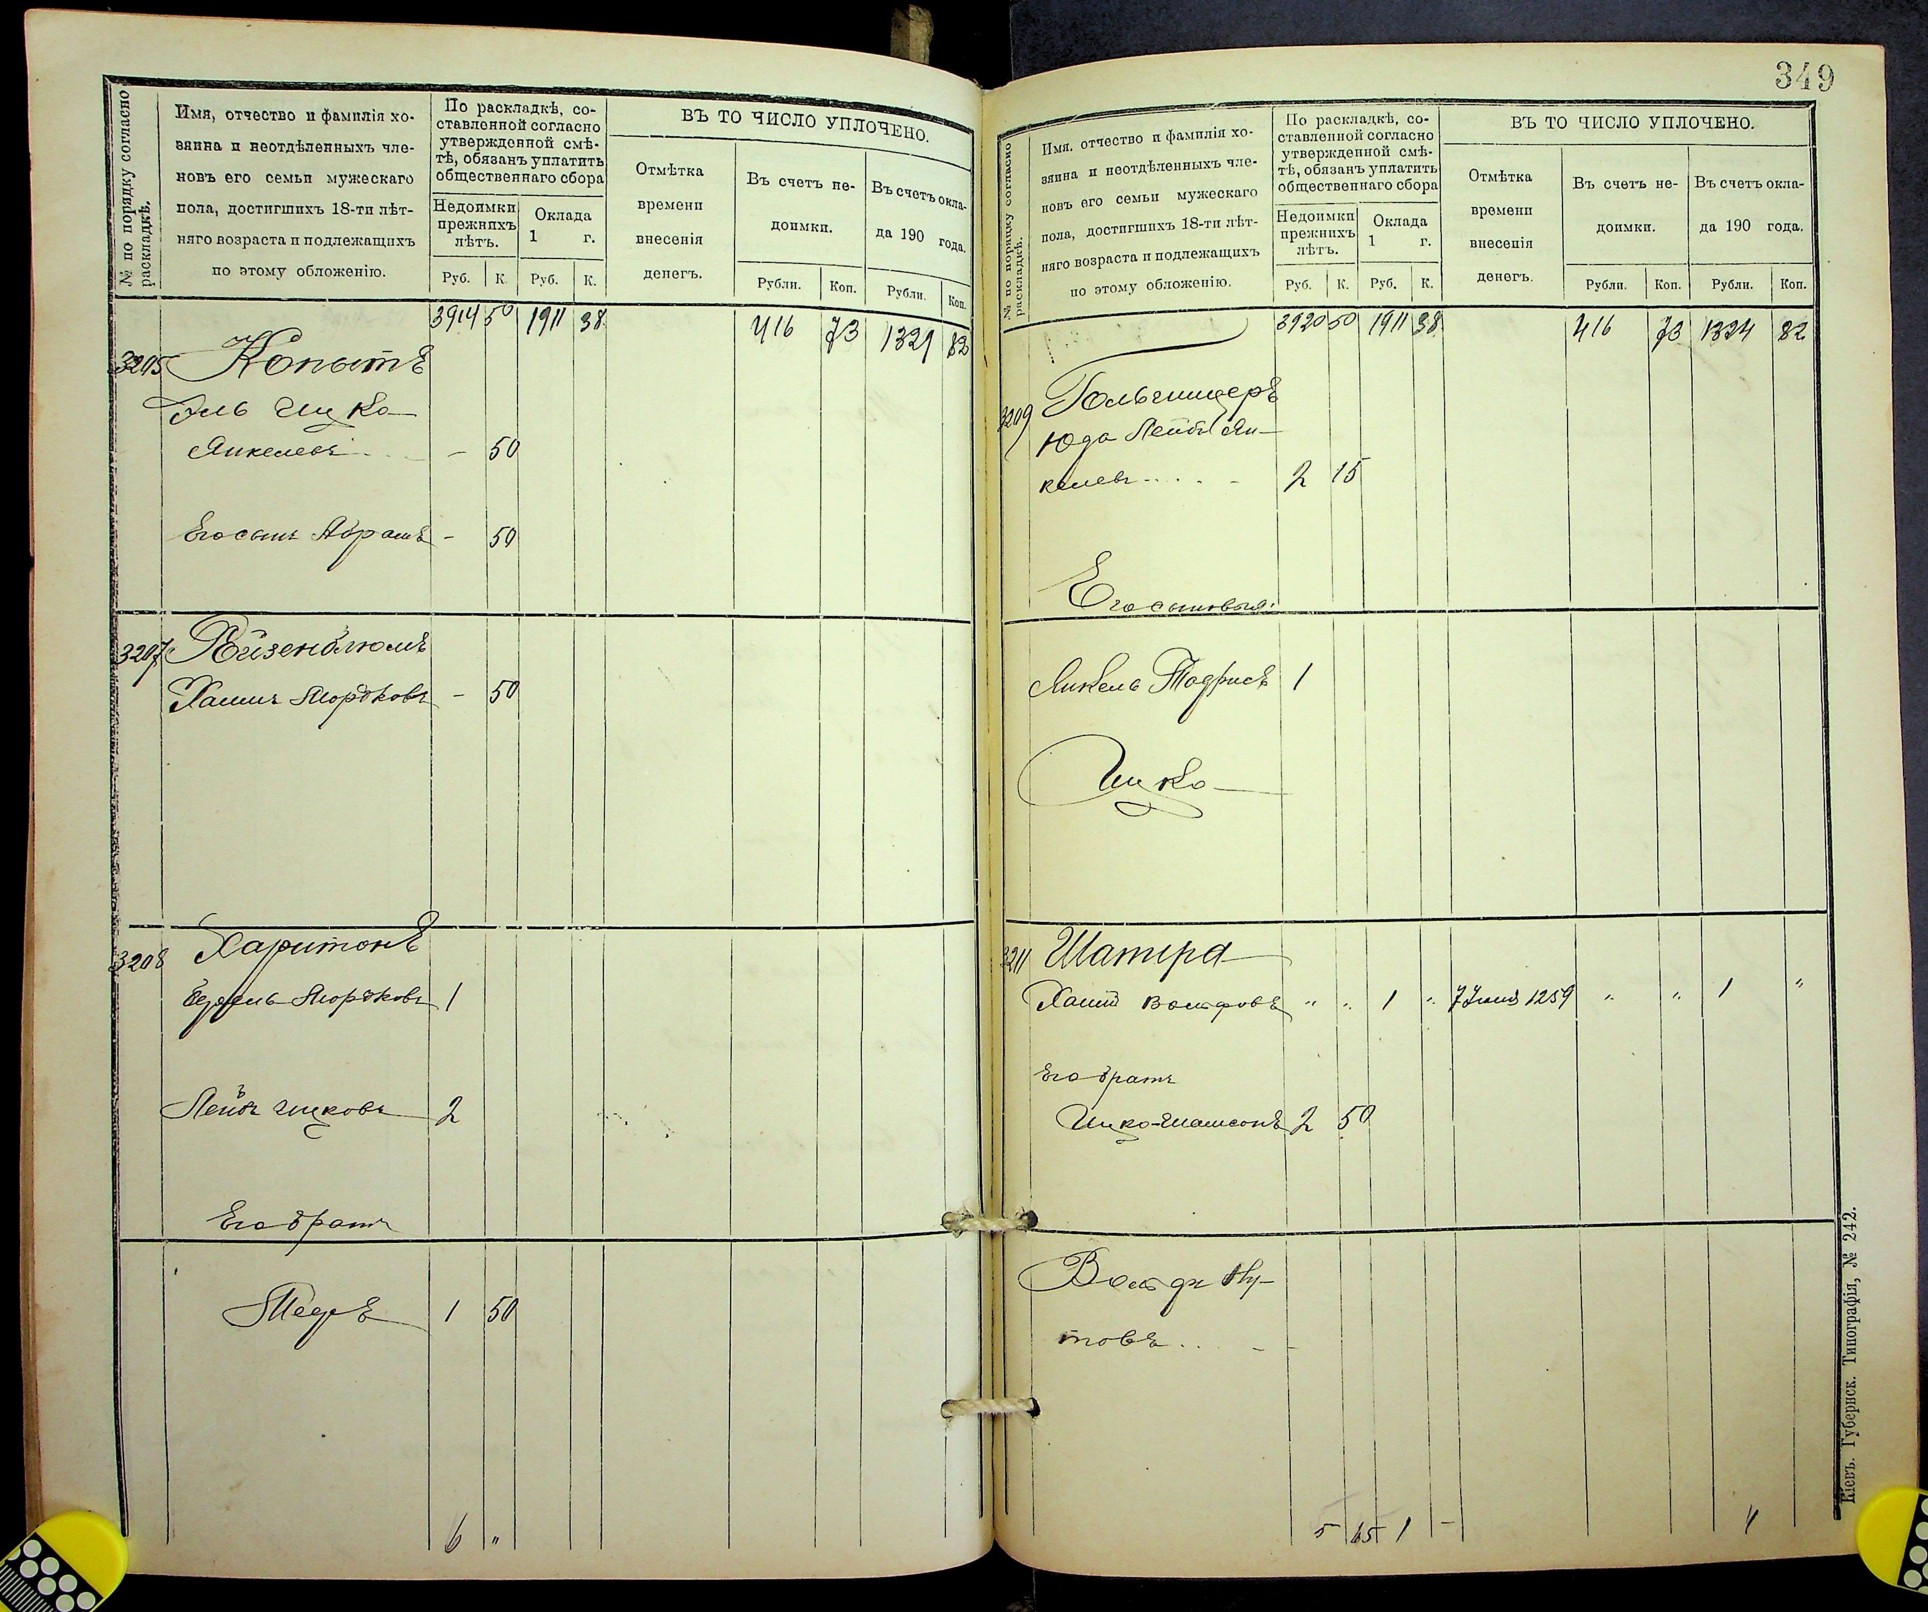 № по порядку согласно раскладкѣ.
Имя, отчество и фамилія хо-
зяина и неотдѣленныхъ чле-
новъ его семьи мужескаго
пола, достигшихъ 18-ти лѣт-
няго возраста и подлежащихъ
по этому обложенію.
По раскладкѣ, со-
ставленной согласно
утвержденной смѣ-
тѣ, обязанъ уплатить
общественнаго сбора
Недоимки
прежнихъ
лѣтъ.
Оклада
1 г.
Руб. К. Руб. К.
ВЪ ТО ЧИСЛО УПЛОЧЕНО.
Отмѣтка
времени
внесенія
денегъ.
Въ счетъ не-
доимки.
Въ счетъ окла-
да 190 года.
Рубли. Коп. Рубли. Коп.
3914 50 1911 38 416 73 1321 82
3205 Копытъ
Ицко
Янкелевъ - 50
Его сынъ Абрамъ - 50
3207 Айзенблюмъ
Хаимъ Мордковъ - 50
3208 Харитонъ
Мордковъ 1
Лейбъ Ицковъ 2
Его братъ
1 50
6 "
349
№ по порядку согласно раскладкѣ.
Имя, отчество и фамилія хо-
зяина и неотдѣленныхъ чле-
новъ его семьи мужескаго
пола, достигшихъ 18-ти лѣт-
няго возраста и подлежащихъ
по этому обложенію.
По раскладкѣ, со-
ставленной согласно
утвержденной смѣ-
тѣ, обязанъ уплатить
общественнаго сбора
Недоимки
прежнихъ
лѣтъ.
Оклада
1 г.
Руб. К. Руб. К.
ВЪ ТО ЧИСЛО УПЛОЧЕНО.
Отмѣтка
времени
внесенія
денегъ.
Въ счетъ не-
доимки.
Въ счетъ окла-
да 190 года.
Рубли. Коп. Рубли. Коп.
3920 50 1911 38 416 73 1324 82
3209
Юда Лейба Ян-
келевъ 2 15
Его сыновья:
Янкель Тодрисъ 1
Ицко
3211 Шапира
Хаимъ Вольфовъ " " 1 " 7 Іюня 1259 " " 1 "
Его братъ
Ицко-Шамсонъ 2 50
товъ
5 65 1 -
Кіевъ. Губернск. Типографія, № 242.